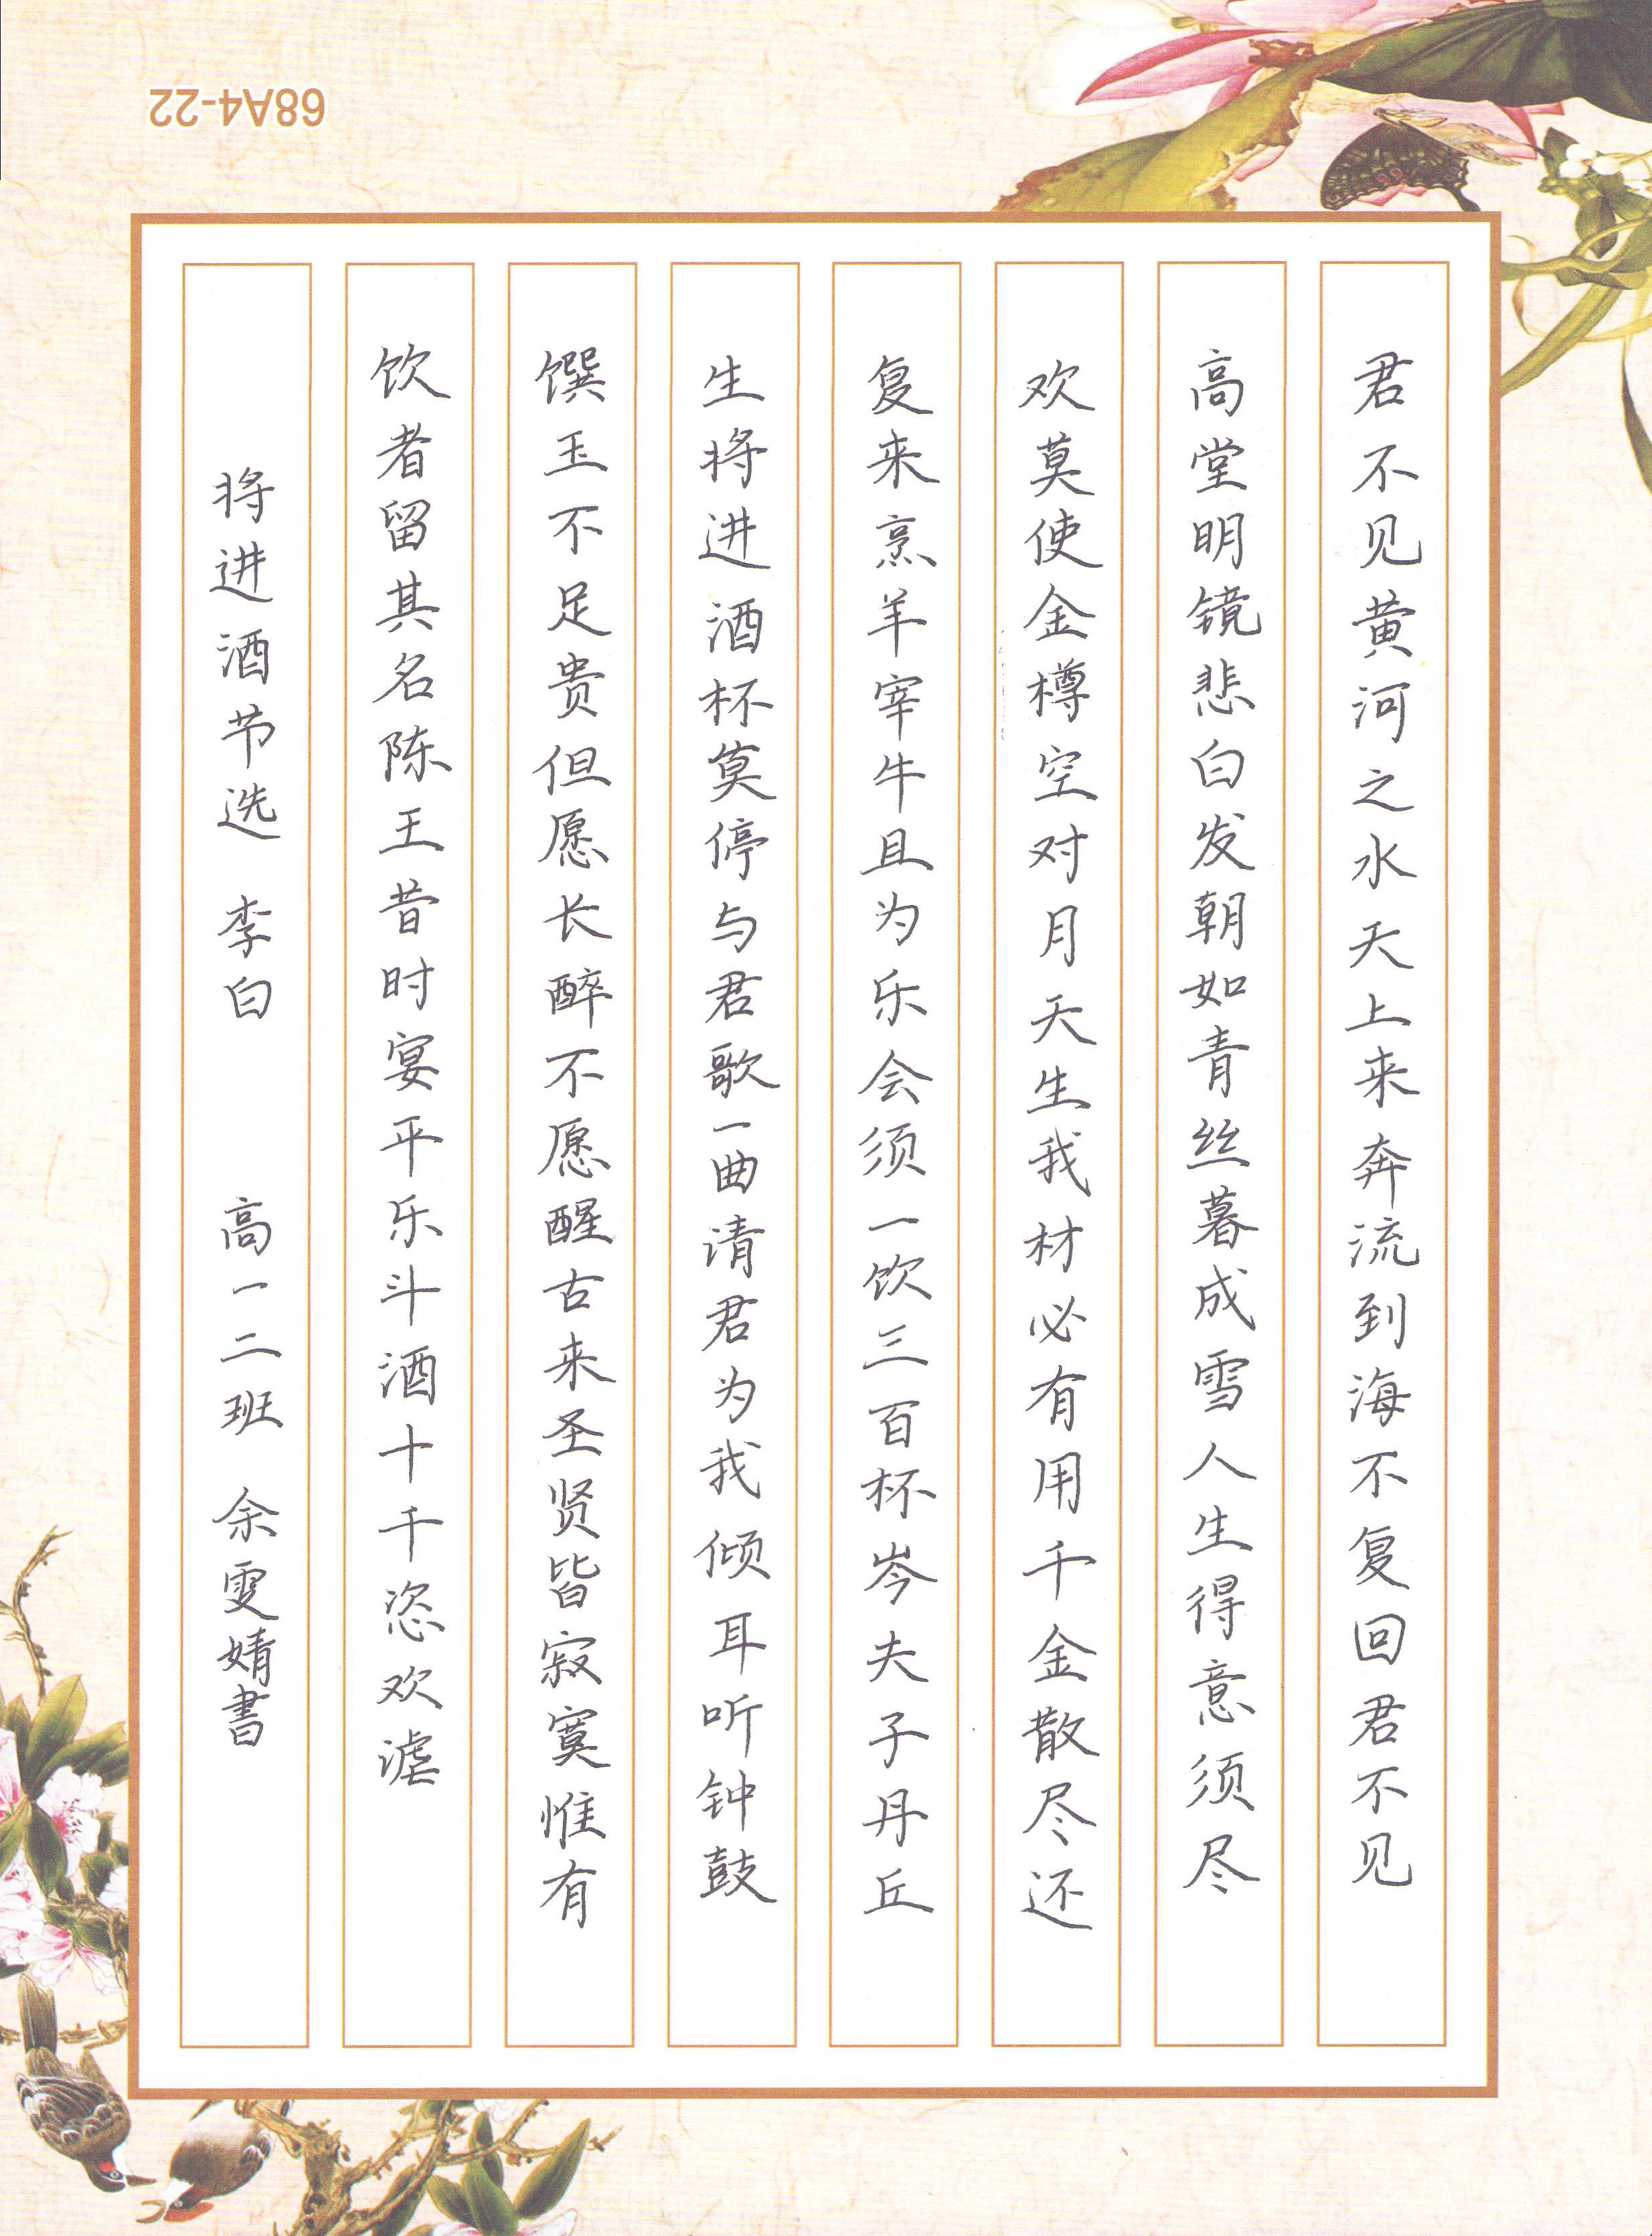 君不见黄河之水天上来奔流到海不复回君不见
高堂明镜悲白发朝如青丝暮成雪人生得意须尽
欢莫使金樽空对月天生我材必有用千金散尽还
复来烹羊宰牛且为乐会须一饮三百杯岑夫子丹丘
生将进酒杯莫停与君歌一曲请君为我倾耳听钟鼓
馔玉不足贵但愿长醉不愿醒古来圣贤皆寂寞惟有
饮者留其名陈王昔时宴平乐斗酒十千恣欢谑
将进酒节选 李白 高一二班 余雯婧書
68A4-22